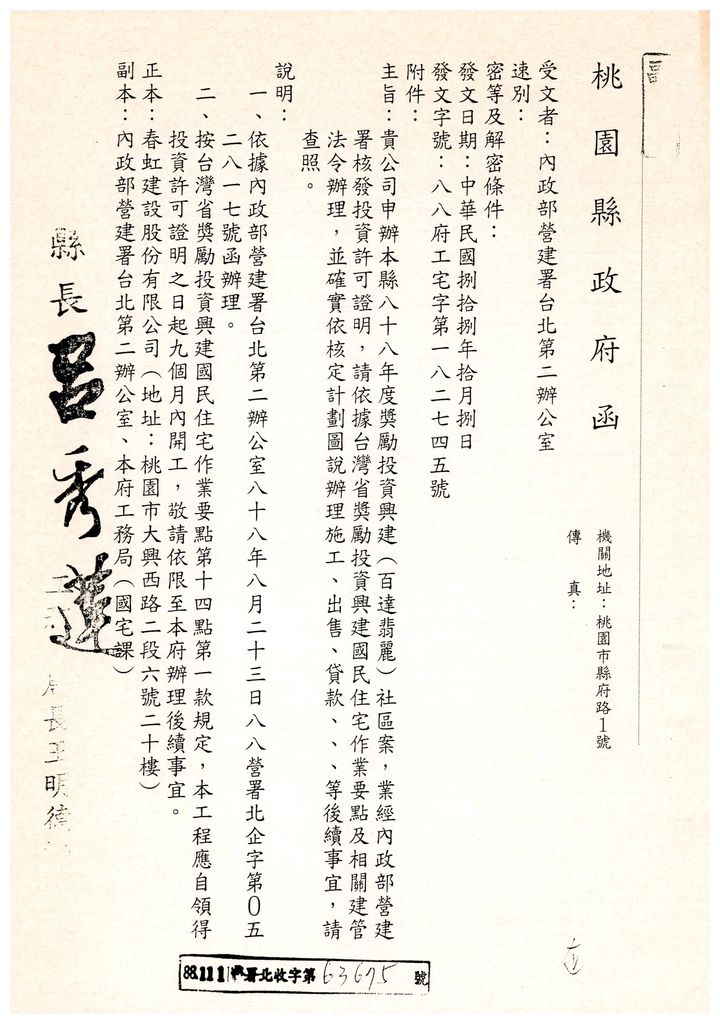 桃園縣政府函
機關地址：桃園市縣府路1號
傳　真：
受文者：內政部營建署台北第二辦公室
速別：
密等及解密條件：
發文日期：中華民國捌拾捌年拾月捌日
發文字號：八八府工宅字第一八二七四五號
附件：
主旨：貴公司申辦本縣八十八年度獎勵投資興建（百達翡麗）社區案，業經內政部營建
署核發投資許可證明，請依據台灣省獎勵投資興建國民住宅作業要點及相關建管
法令辦理，並確實依核定計劃圖說辦理施工、出售、貸款、、、等後續事宜，請
查照。
說明：
一、依據內政部營建署台北第二辦公室八十八年八月二十三日八八營署北企字第0五
二八一七號函辦理。
二、按台灣省獎勵投資興建國民住宅作業要點第十四點第一款規定，本工程應自領得
投資許可證明之日起九個月內開工，敬請依限至本府辦理後續事宜。
正本：春虹建設股份有限公司（地址：桃園市大興西路二段六號二十樓）
副本：內政部營建署台北第二辦公室、本府工務局（國宅課）
縣長呂秀蓮
局長王明德
88.11.1 營署北收字第63675號